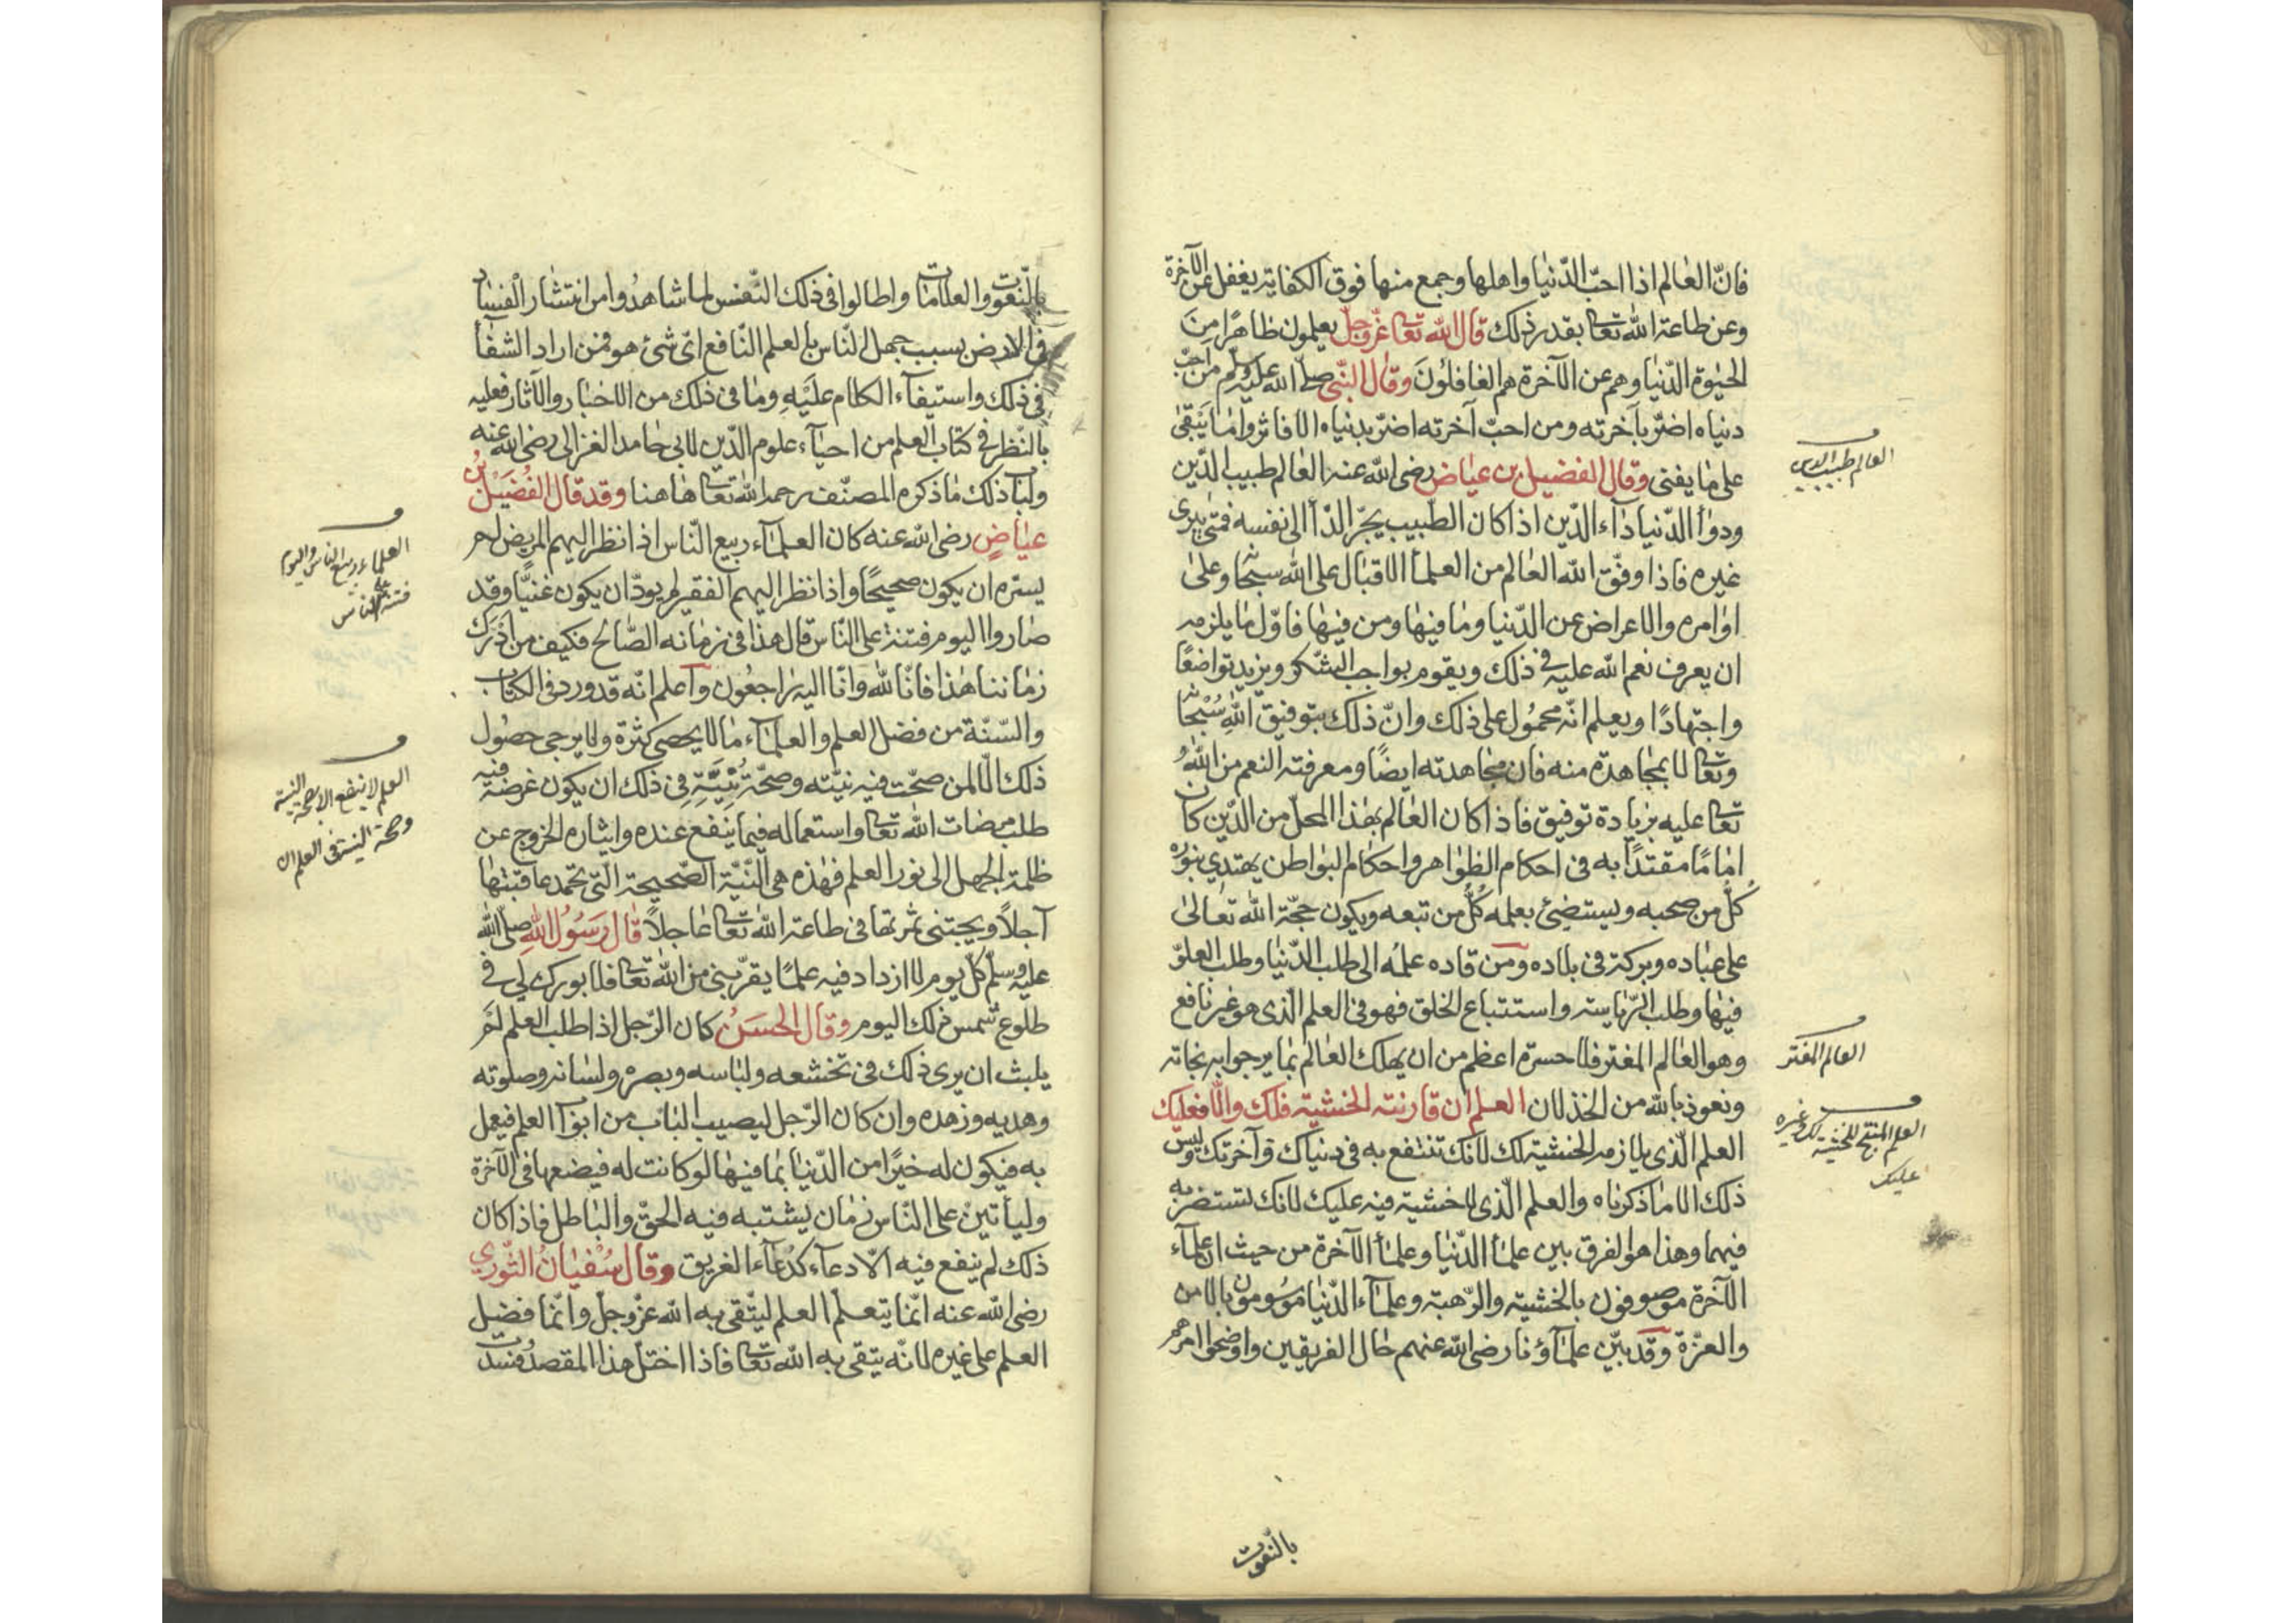 فانّ العالم اذا احبّ الدّنيا واهلها وجمع منها فوق الكفاية يغفل عن الآخرة
وعن طاعة الله تعا بقدر ذلك قال الله تعا عزّوجلّ يعلمون ظاهرًا مِنَ
الحيٰوة الدّنيا وهم عن الآخرة هم الغافلُونَ وقال النّبي صلّى الله عليه وسلّم من احبّ
دنياه اضرّ بآخرته ومن احبّ آخرته اضرّ بدنياه الا فاثروا ما يَبْقىٰ
على ما يفنى وقال الفضيل بن عياض رضى الله عنه العالم طبيب الدّين
ودوأ الدّنيا دآء الدّين اذا كان الطّبيب يجرّ الدّأ الى نفسه فمتى يبرى
غيره فاذا وفّق الله العالم من العلمأ الاقبال على الله سبحا وعلىٰ
اوامره والاعراض عن الدّنيا وما فيها ومن فيها فاوّل ما يلزمه
ان يعرف نعم الله عليه فى ذلك ويقوم بواجب الشّكر ويزيد تواضعًا
واجتهادًا ويعلم انّه محمُول على ذلك وانّ ذلك بتوفيق اللهِ سُبْحا
وتعا لا بمجاهدة منه فان مجاهدته ايضًا ومعرفته النعم من اللهُ
تعا عليه بزيادة توفيق فاذا كان العالم بهٰذا المحلّ من الدّين كان
امامًا مقتدًا به فى احكام الظواهر واحكام البواطن يهتدي بنوره
كُلّ من صحبه ويستضئ بعلمه كُلّ من تبعه ويكون حجّة الله تعالىٰ
على عباده وبركة فى بلاده ومن قاده علمُه الى طلب الدّنيا وطلب العلوّ
فيها وطلب الرّياسة واستتباع الخلق فهو فى العلم الّذى هو غير نافع
وهو العالم المغتر فلا حسرة اعظم من ان يهلك العالم بما يرجوا به نجاته
ونعوذ بالله من الخذلان العلم ان قارنته الخشية فلك والّا فعليك
العلم الّذى يلازمه الخشية لك لانّك تنتفع به فى دنياك وآخرتك وليس
ذلك الا ما ذكرناه والعلم الّذى لا خشية فيه عليك لانك تستضرّ به
فيهما وهذا هو الفرق بين علمأ الدّنيا وعلمأ الآخرة من حيث ان علمآء
الآخرة موصوفون بالخشية والرّهبة وعلمآء الدّنيا موسومون بالامن
والعزّة وقد بيّن علمآؤنا رضى الله عنهم حال الفريقين واوضحوا امرهم
العالم طبيب الدين
العالم المغتر
العلم المنتج للخشية لك وغيره
عليك
بالنّعوت
بالنّعوت والعلامات واطالوا فى ذلك النّفس لما شاهدُوا من انتشار الفساد
فى الارض بسبب جهل النّاس بالعلم النّافع اىّ شئ هو فمن اراد الشفأ
فى ذلك واستيفآء الكلام عليْهِ وما فى ذلك من الاخبار والآثار فعليه
بالنّظر فى كتاب العلم من احيآء علوم الدّين لابى حامد الغزالى رضى الله عنه
ولباّ ذلك ما ذكره المصنّف رحمه الله تعا هاهنا وقد قال الفُضَيْل بنُ
عياضٍ رضى الله عنه كان العلمآء ربيع النّاس اذا نظر اليهم المريض لم
يسرّه ان يكون صحيحًا واذا نظر اليهم الفقير لم يودّ ان يكون غنيًّا وقد
صاروا اليوم فتنة على النّاس قال هذا فى زمانه الصّالح فكيف من اَدْرَكَ
زماننا هٰذا فانّا لله وانّا اليه راجعُون وآعلم انّه قد ورد فى الكتاب
والسّنّة من فضل العلم والعلمآء ما لا يحصى كثرة ولا يرجى حصُول
ذلك الّا لمن صحّت فيه نيّته وصحّة نيّتِهِ فى ذلك ان يكون غرضه فيه
طلب مرضات الله تعا واستعماله فيما ينفع عنده وايثاره الخروج عن
ظلمة الجهل الى نور العلم فهٰذه هى النّيّة الصّحيحة الّتى تحمد عاقبتها
آجلاً ويجتنى ثمرتها فى طاعة الله تعا عاجلاً قال رَسُولُ اللهِ صلّى الله
عليه وسلّم كلّ يوم لا ازداد فيه علمًا يقرّبنى من الله تعا فلا بورك لى فى
طلوع شمس ذلك اليوم وقال الحسَنُ كان الرّجل اذا طلب العلم لَمْ
يلبث ان يرى ذلك فى تخشعه ولباسه وبصره ولسانه وصلوته
وهديه وزهده وان كان الرّجل ليصيب الباب من ابوآ العلم فيعمل
به فيكون له خيرًا من الدّنيا بما فيها لو كانت له فيضعها فى الآخرة
وليأتينّ على النّاس زمان يشتبه فيه الحقّ والباطل فاذا كان
ذلك لم ينفع فيه الّا دعآء كدُعآء الغريق وقال سُفْيَانُ الثّوري
رضى الله عنه انّما يتعلّم العلم ليتّقى به الله عزّوجلّ وانّما فضل
العلم على غيره لانّه يتقى به الله تعا فاذا اختلّ هذا المقصدُ وفسدت
العلماء ربيع الناس واليوم
فتنة على الناس
العلم لا ينفع الا بصحة النية
وصحة النية فى العلم ان